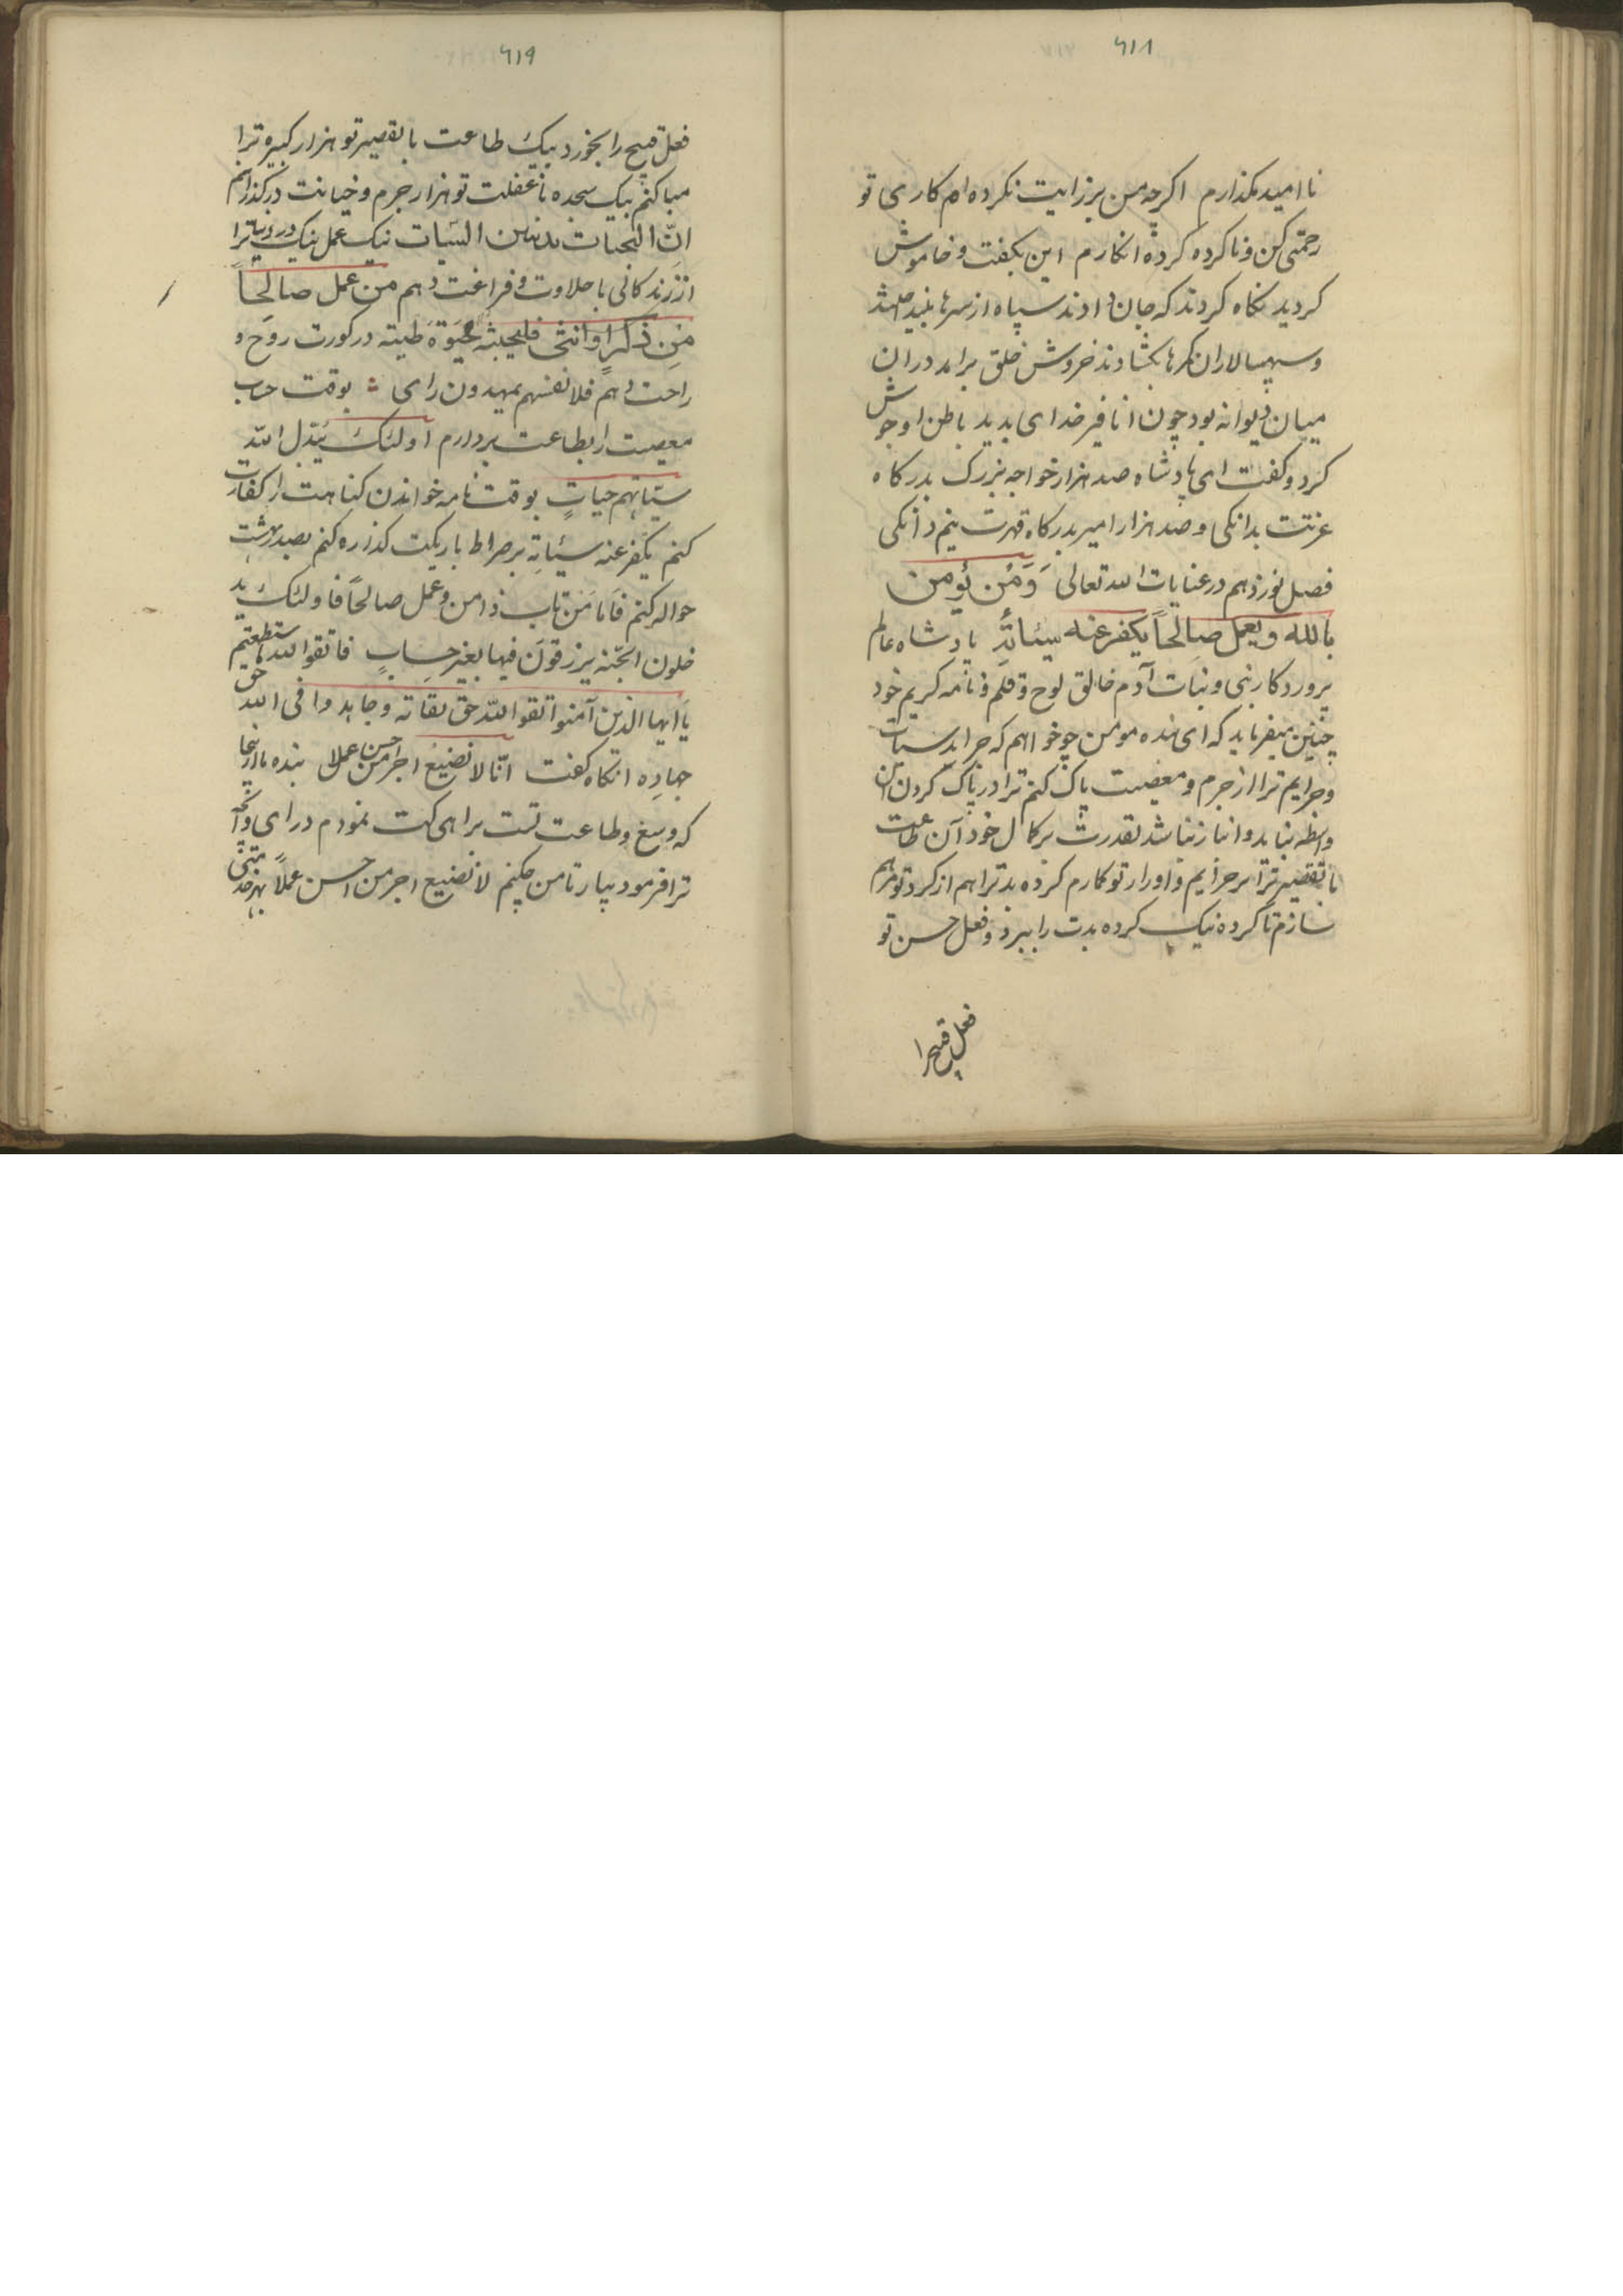 ۶۱۸
نا امید مگذارم اگرچه من برزایت نکرده ام کاری تو
رحمتی کن و نا کرده کرده انگارم این بگفت و خاموش
گردید نگاه کردند که جان دادند سپاه از سرها
و سپهسالاران کمرها بکشادند خروش خلق برامد دران
میان دیوانه بود چون خدای بدید باطن او جوش
کرد و گفت ای پادشاه صد هزار خواجه بزرگ بدرگاه
عزتت بدانکی و صد هزار امیر بدرگاه قهرت نیم دانکی
فصل نوزدهم در عنایات الله تعالی وَمَن یؤمن
بالله ویعمل صالحاً یکفر عنه سیئاته پادشاه عالم
پروردکار بنی و بنات آدم خالق لوح و قلم در نامه کریم خود
چنین میفرماید که ای بنده مومن چو خواهم که جراید سیئات
و جرایم ترا از جرم و معصیت پاک کنم ترا در پاک کردن آن
واسطه نباید و انباز نباشد بقدرت بر کمال خود آن طاعت
با تقصیر ترا بر جرایم و اوزار تو کمارم کرده بد ترا هم از کرد تو مرهم
سازم تا کرده نیک کرده بدت را ببرد و فعل حسن تو
فعل قبیح را
۶۱۹
فعل قبیح را بخورد بیک طاعت با تقصیر تو هزار کبیره ترا
هبا کنم بیک سجده با غفلت تو هزار جرم و خیانت درگذرانم
انّ الحسنات یذهبن السیات نیک عمل نیک در دنیا ترا
از زندگانی با حلاوت و فراغت دهم من عمل صالحاً
مِن ذکرٍ او انثی فلنحیینه حیوة طیبة در کورت روح و
راحت دهم فلانفسهم یمهدون رای بوقت حساب
معصیت را بطاعت بردارم اولئک یبدل الله
سیئاتهم حسناتٍ بوقت نامه خواندن گناهت را کفارت
کنم یکفر عنه سیئاته بر صراط باریکت گذاره کنم بصدر بهشت
حواله کنم فاما مَن تاب وامن وعمل صالحاً فاولئک ید
خلون الجنّة یرزقون فیها بغیر حسابٍ فاتقوا الله ما ستطعتم
یا ایها الذین آمنوا اتقوا الله حق تقاته وجاهدوا فی الله حق
جهاده انگاه گفت انّا لا نضیع اجر من احسن عملا بنده ما ازینجا
که وسع و طاعت تست براهی کت نمودم درای وانچه
ترا فرمود بیار تا من چکنم لا نضیع اجر من احسن عملاً بهر